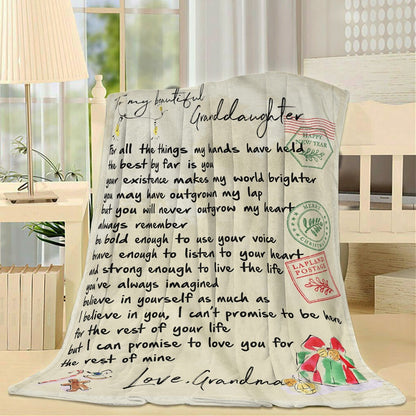 To my beautiful
Granddaughter
For all the things my hands have held
the best by far is you
your existence makes my world brighter
you may have outgrown my lap
but you will never outgrow my heart
always remember
be bold enough to use your voice
brave enough to listen to your heart
and strong enough to live the life
you've always imagined
believe in yourself as much as
I believe in you, I can't promise to be here
for the rest of your life
but I can promise to love you for
the rest of mine
Love, Grandma
HAPPY
NEW YEAR
MERRY
CHRISTMAS
LAPLAND
POSTAGE